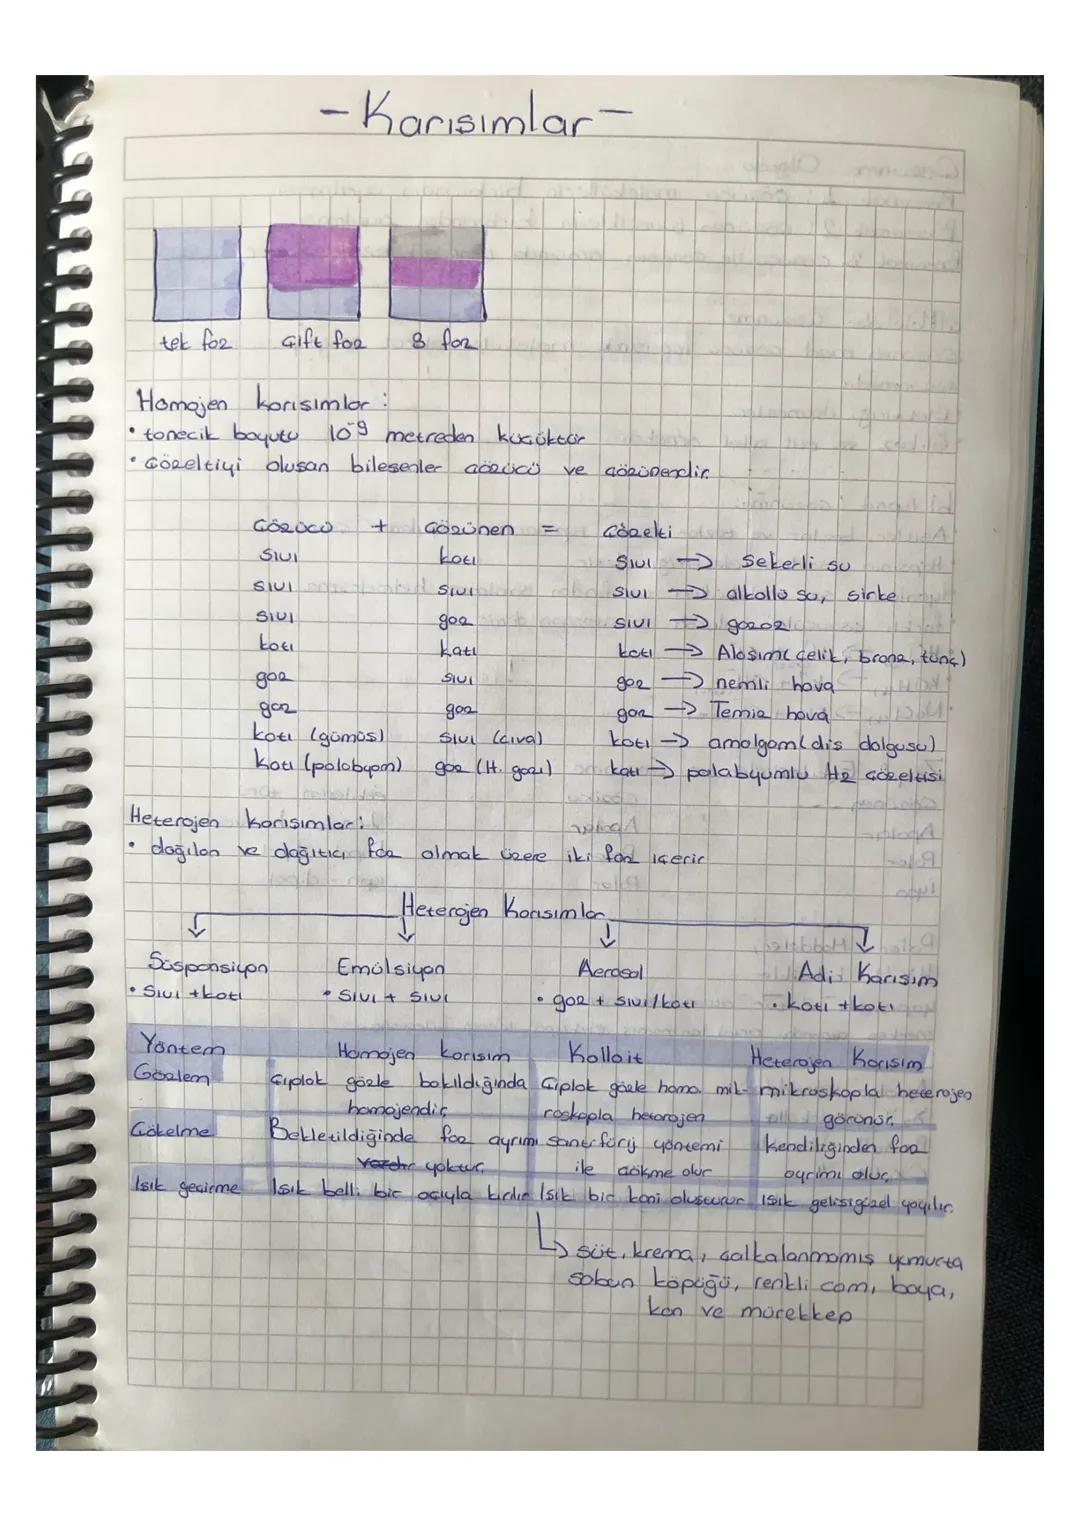 - Karışımlar -
tek faz çift faz 3 faz
Homojen karışımlar :
• tanecik boyutu 10⁻⁹ metreden küçüktür
• Çözeltiyi oluşan bileşenler çözücü ve çözünendir.
Çözücü + Çözünen = Çözelti
sıvı katı sıvı → Şekerli su
sıvı sıvı sıvı → alkollü su, sirke
sıvı gaz sıvı → gazoz
katı katı katı → Alaşım( çelik, bronz, tunç)
gaz sıvı gaz → nemli hava
gaz gaz gaz → Temiz hava
katı (gümüş) sıvı (civa) katı → amalgam( diş dolgusu)
katı (palabyom) gaz (H. gazı) katı → palabyumlu H2 çözeltisi
Heterojen karışımlar:
• dağılan ve dağıtıcı faz olmak üzere iki faz içerir
Heterojen Karışımlar
Süspansiyon Emülsiyon Aerosol Adi Karışım
• Sıvı + katı • Sıvı + sıvı • gaz + sıvı/katı • katı + katı
Yöntem Homojen karışım Kolloit Heterojen Karışım
Gözlem Çıplak gözle bakıldığında Çıplak gözle homo. mik- mikroskopla heterojen
homojendir. roskopla heterojen görünür.
Çökelme Bekletildiğinde faz ayrımı santrfürüj yöntemi kendiliğinden faz
vardır yoktur. ile çökme olur ayrımı olur.
Işık geçirme Işık belli bir açıyla kırılır Işık bir koni oluşturur Işık gelişigüzel yayılır.
↳ süt, krema, çalkalanmamış yumurta
sabun köpüğü, renkli cam, boya,
kan ve mürekkep